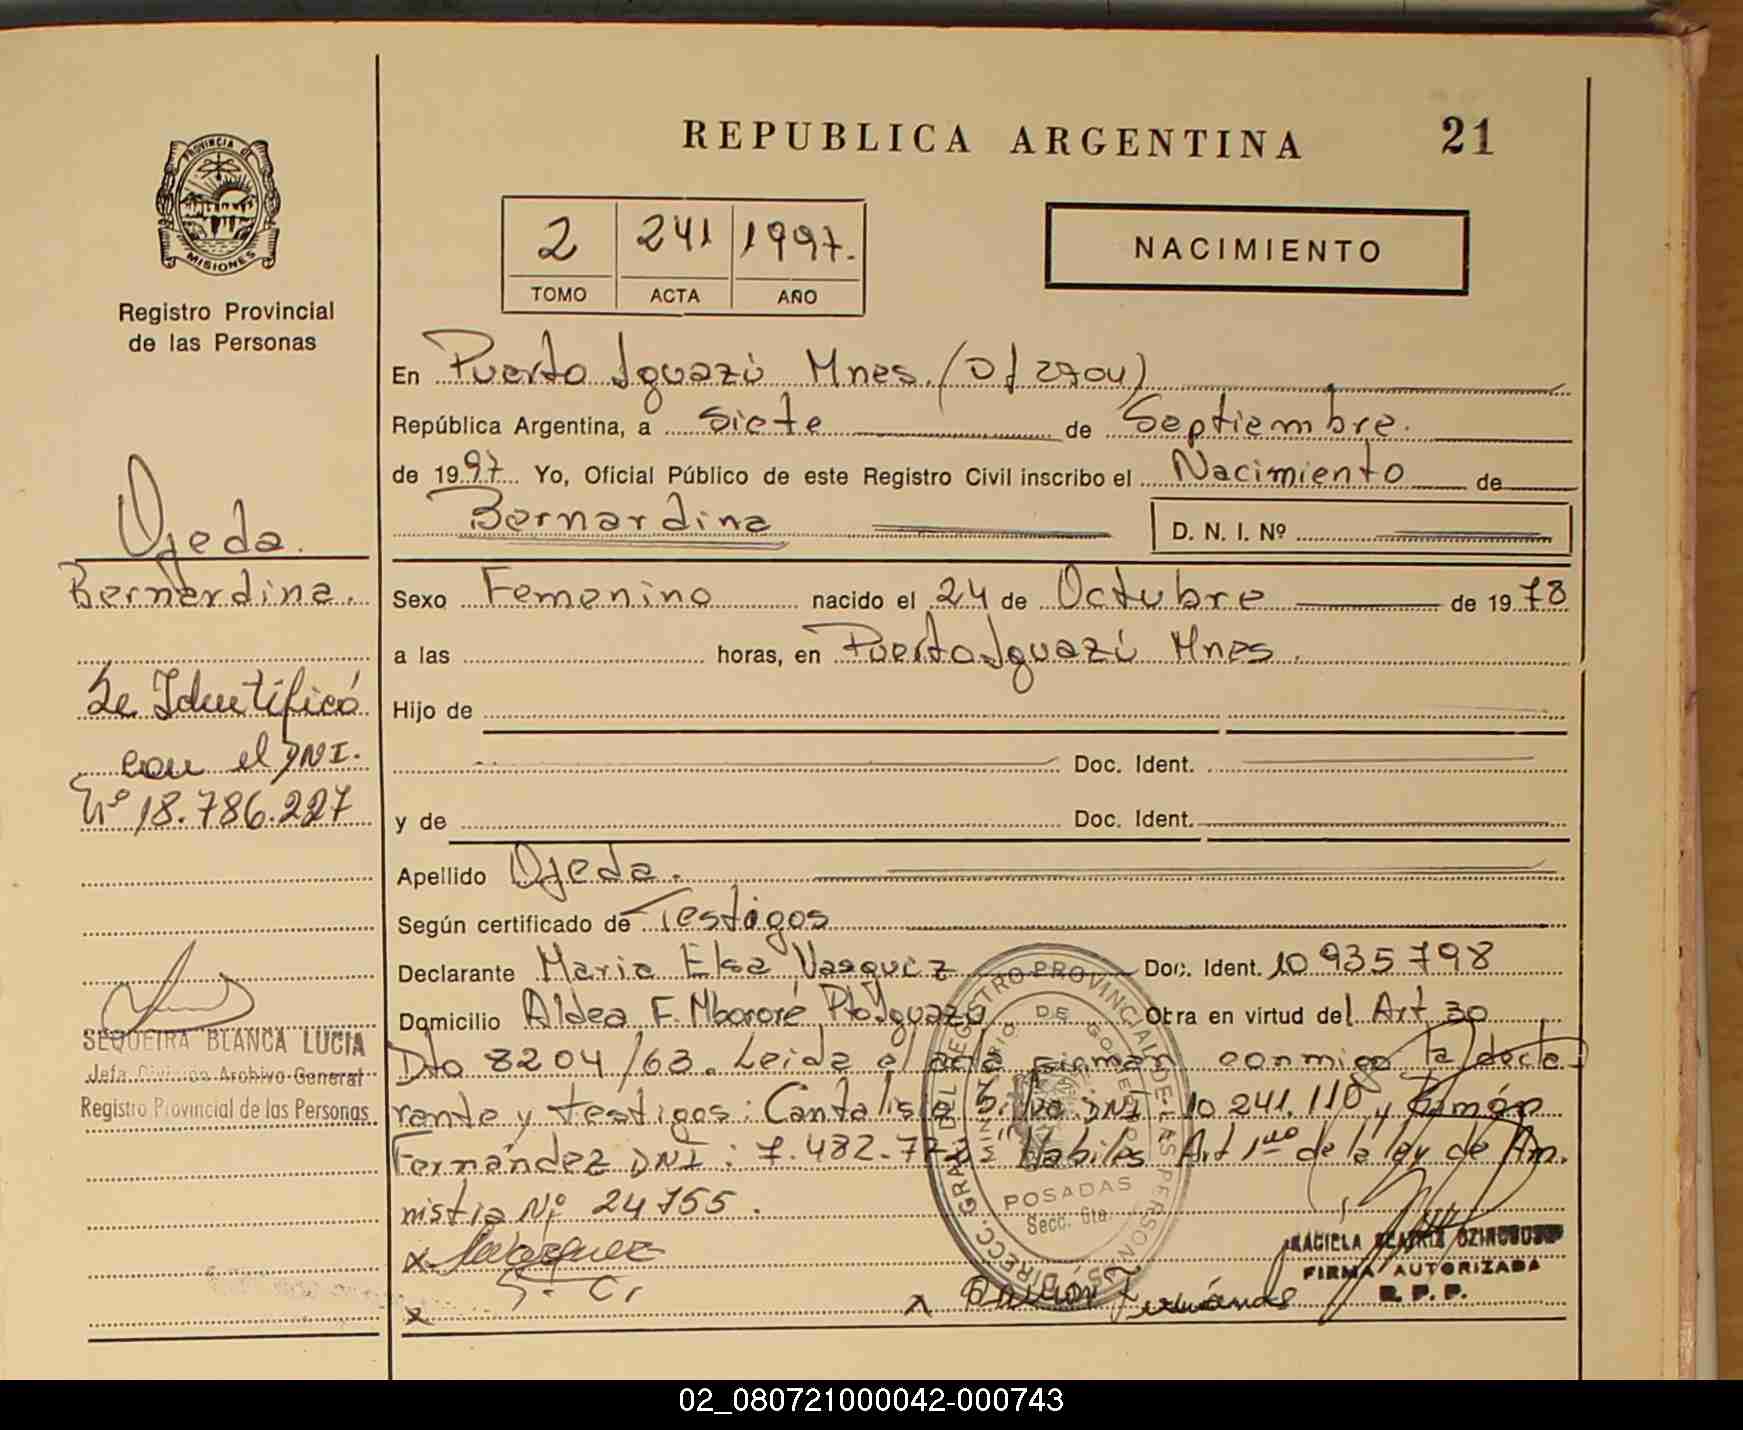 REPUBLICA ARGENTINA
21
PROVINCIA DE
MISIONES
Registro Provincial
de las Personas
2 241 1997.
TOMO ACTA AÑO
NACIMIENTO
En Puerto Iguazú Mnes. (Of 2704)
República Argentina, a siete de Septiembre.
de 1997. Yo, Oficial Público de este Registro Civil inscribo el Nacimiento de
Bernardina D. N. I. Nº
Ojeda.
Bernardina.
Se Identificó
con el DNI.
Nº 18.786.227
SEQUEIRA BLANCA LUCIA
Jefa División Archivo General
Registro Provincial de las Personas
Sexo Femenino nacido el 24 de Octubre de 1978
a las horas, en Puerto Iguazú Mnes.
Hijo de
Doc. Ident.
y de Doc. Ident.
Apellido Ojeda.
Según certificado de Testigos
Declarante Maria Elsa Vasquez Doc. Ident. 10 935 798
Domicilio Aldea F. Mbororé Pto Iguazú Otra en virtud del Art 30
Dto 8204/63. Leida el acta firman conmigo la decla
rante y testigos: Cantalisia Silva DNI 10 241.110 y Ramón
Fernández DNI: 7.482.772 "Habiles" Art 1ro de la ley de Am.
nistia Nº 24755.
x
S. C.
x
x Ramón Fernández
DIRECC. GRAL. DEL REGISTRO PROVINCIAL DE LAS PERSONAS
MINISTERIO DE GOBIERNO
POSADAS
Secc. Gta.
FIRMA AUTORIZADA
R. P. P.
02_080721000042-000743